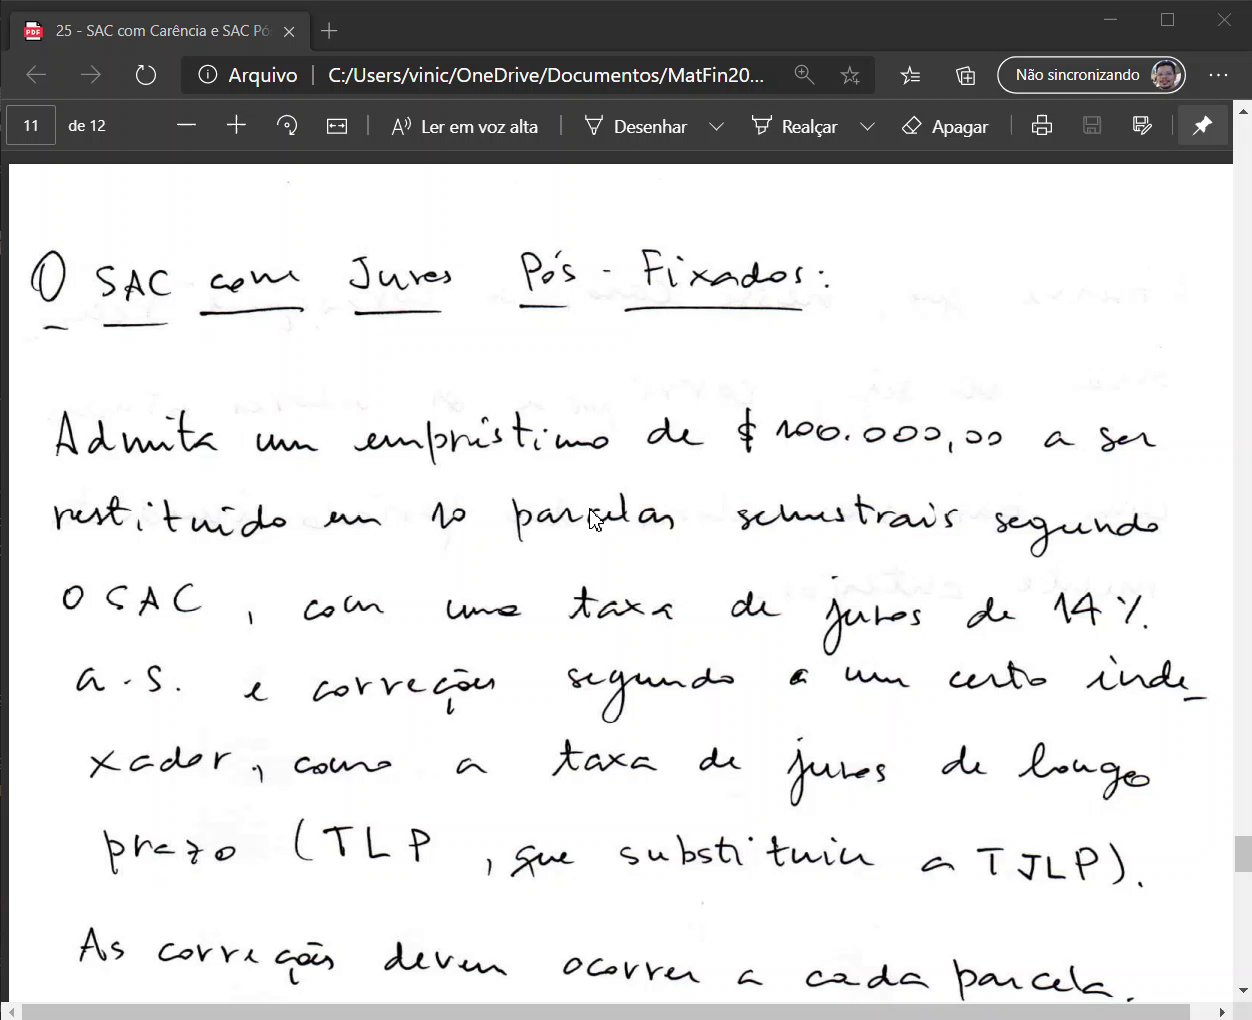 25 - SAC com Carência e SAC Pó
Arquivo
C:/Users/vinic/OneDrive/Documentos/MatFin20...
Não sincronizando
11 de 12
Ler em voz alta
Desenhar
Realçar
Apagar
O SAC com Juros Pós-Fixados:
Admita um empréstimo de $ 100.000,00 a ser
restituído em 10 parcelas semestrais segundo
O SAC, com uma taxa de juros de 14%
a.s. e correções segundo a um certo inde_
xador, como a taxa de juros de longo
prazo (TLP, que substituiu a TJLP).
As correções devem ocorrer a cada parcela.